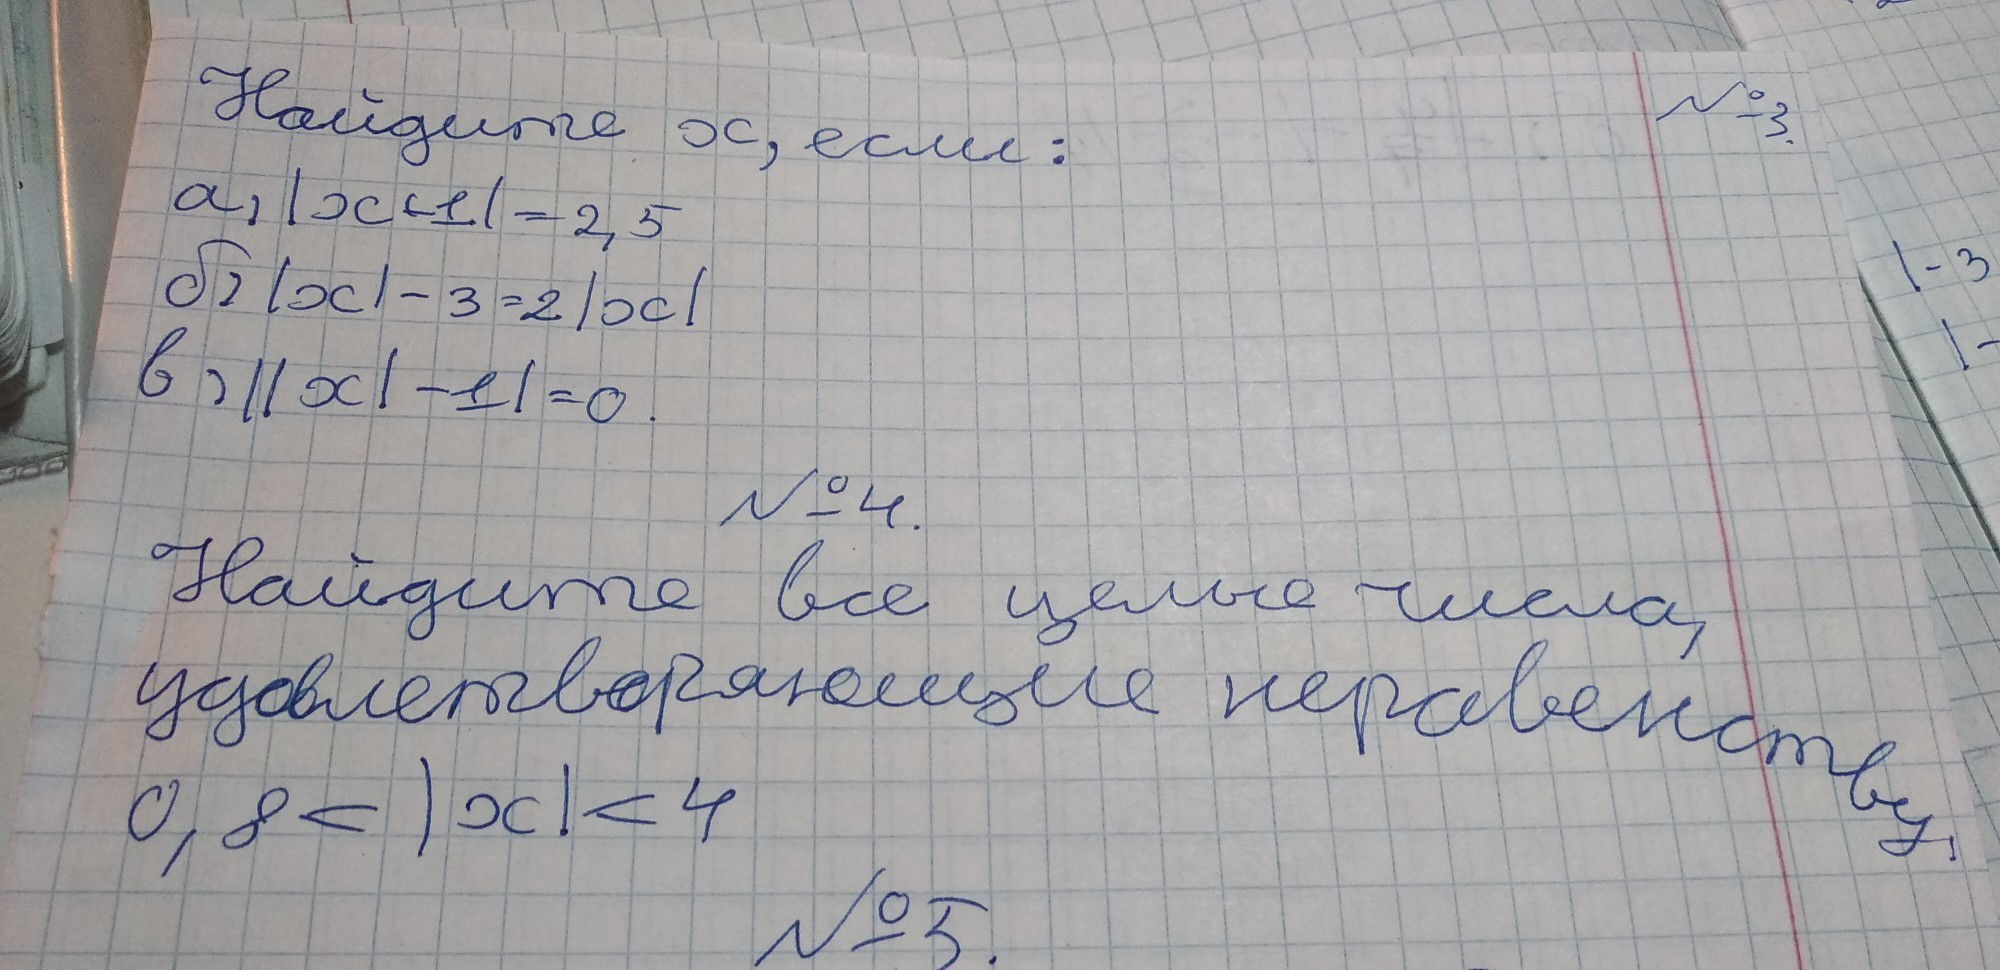 №3.
Найдите x, если:
а) |x-1|=2,5
б) |x|-3=2|x|
в) ||x|-1|=0.
№4.
Найдите все целые числа,
удовлетворяющие неравенству,
0,8<|x|<4
№5.
|-3
|-